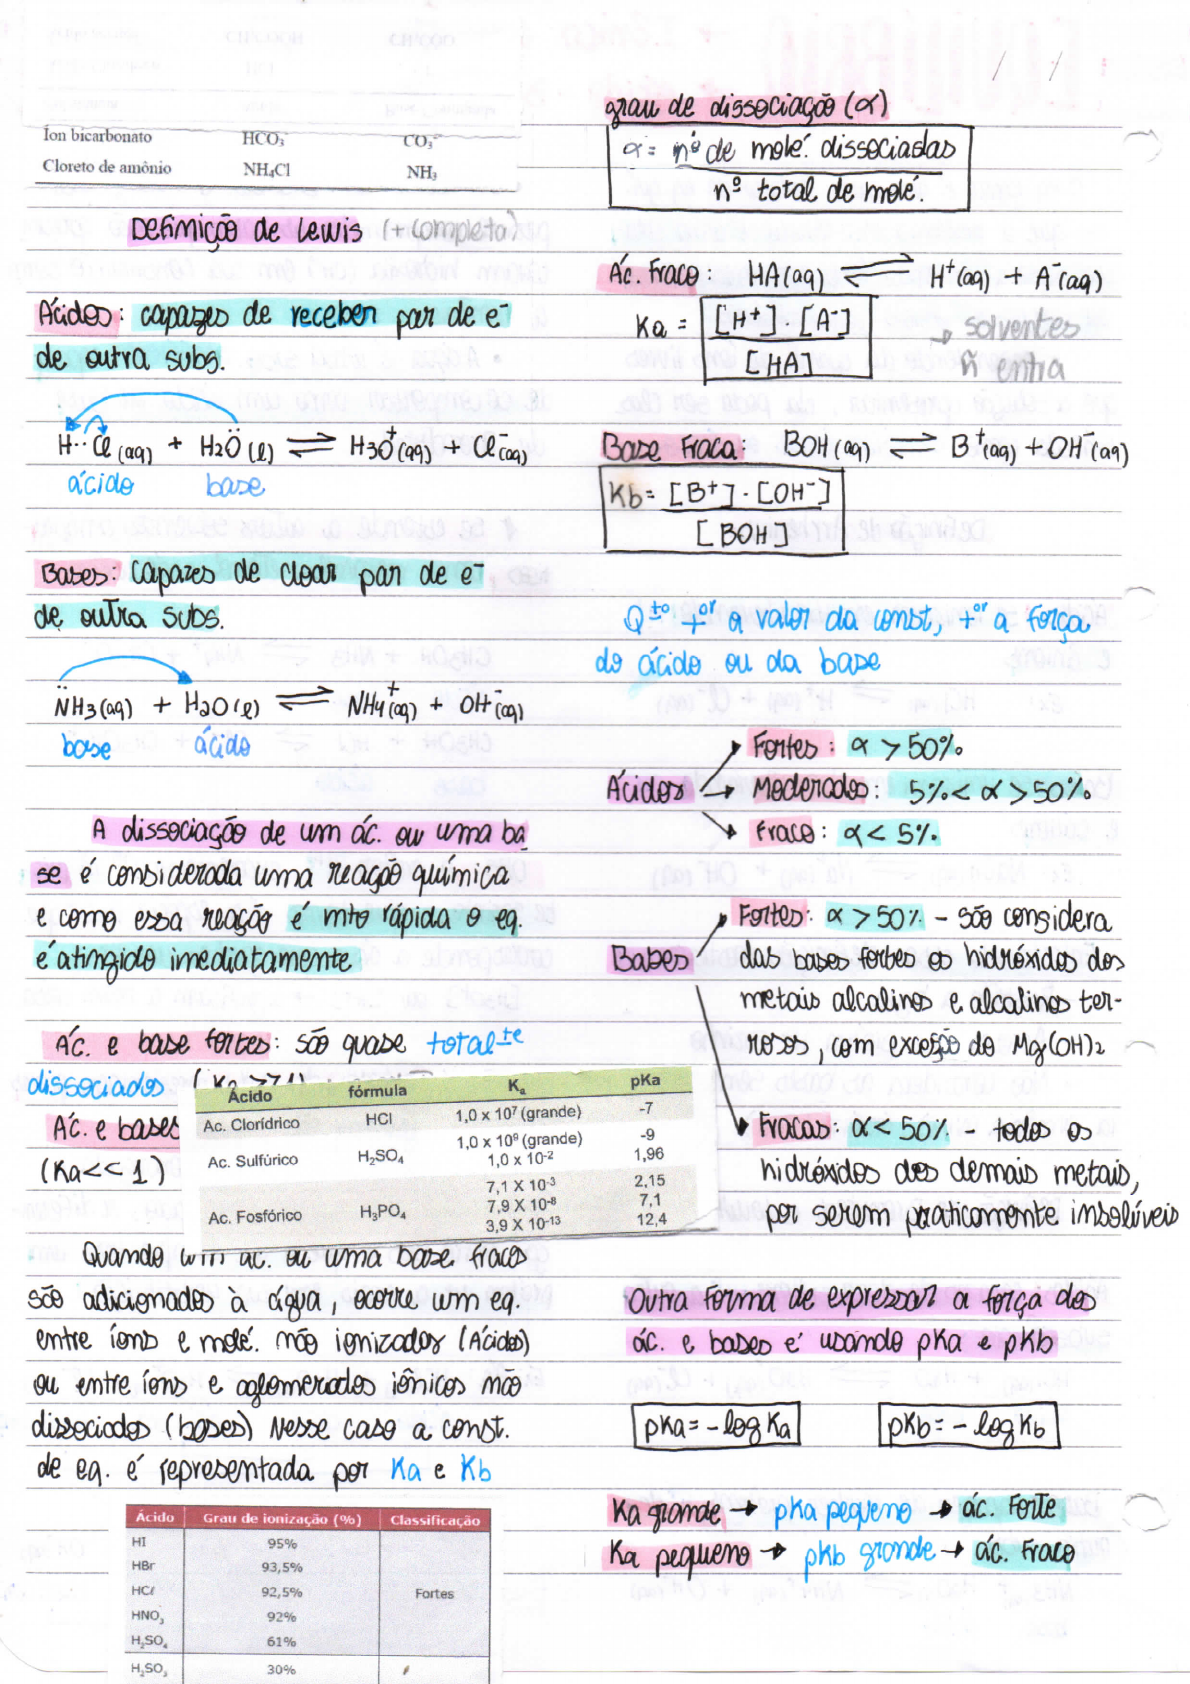 Íon bicarbonato HCO₃⁻ CO₃²⁻
Cloreto de amônio NH₄Cl NH₃
Definição de Lewis (+ completa)
Ácidos: capazes de receber par de e⁻
de outra subs.
H··Cl (aq) + H2Ö (l) ⇌ H3O⁺(aq) + Cl⁻(aq)
ácido base
Bases: capazes de doar par de e⁻
de outra subs.
N̈H3(aq) + H2O(l) ⇌ NH4⁺(aq) + OH⁻(aq)
base ácido
A dissociação de um ác. ou uma ba
se é considerada uma reação química
e como essa reação é mto rápida o eq.
é atingido imediatamente
Ác. e base fortes: são quase totalᵗᵉ
dissociados
Ác. e bases
(Ka<<1)
Ácido fórmula Kₐ pKa
Ac. Clorídrico HCl 1,0 x 10⁷ (grande) -7
Ac. Sulfúrico H₂SO₄ 1,0 x 10⁹ (grande) -9
1,0 x 10⁻² 1,96
Ac. Fosfórico H₃PO₄ 7,1 X 10⁻³ 2,15
7,9 X 10⁻⁸ 7,1
3,9 X 10⁻¹³ 12,4
Quando um ác. ou uma base fracos
são adicionados à água, ocorre um eq.
entre íons e molé. não ionizados (Ácidos)
ou entre íons e aglomerados iônicos não
dissociados (bases) Nesse caso a const.
de eq. é representada por Ka e Kb
Ácido Grau de ionização (%) Classificação
HI 95%
HBr 93,5%
HCℓ 92,5% Fortes
HNO₃ 92%
H₂SO₄ 61%
H₂SO₃ 30%
/ /
grau de dissociação (α)
α = nº de molé. dissociadas
nº total de molé.
Ác. Fraco: HA(aq) ⇌ H⁺(aq) + A⁻(aq)
Ka = [H⁺] [A⁻]
[HA]
→ solventes
ñ entra
Base fraca BOH(aq) ⇌ B⁺(aq) + OH⁻(aq)
Kb = [B⁺] · [OH⁻]
[BOH]
Qᵗᵒ +ᵒʳ o valor da const, +ᵒʳ a força
do ácido ou da base
Ácidos → Fortes: α > 50%
→ Moderados: 5% < α > 50%
→ Fraco: α < 5%
Bases → Fortes: α > 50% - são considera
das bases fortes os hidróxidos dos
metais alcalinos e alcalinos ter-
rosos, com exceção do Mg(OH)2
→ Fracas: α < 50% - todos os
hidróxidos dos demais metais,
por serem praticamente insolúveis
Outra forma de expressar a força dos
ác. e bases é usando pKa e pKb
pKa = - log Ka pKb = - log Kb
Ka grande → pKa pequeno → ác. Forte
Ka pequeno → pKb grande → ác. Fraco